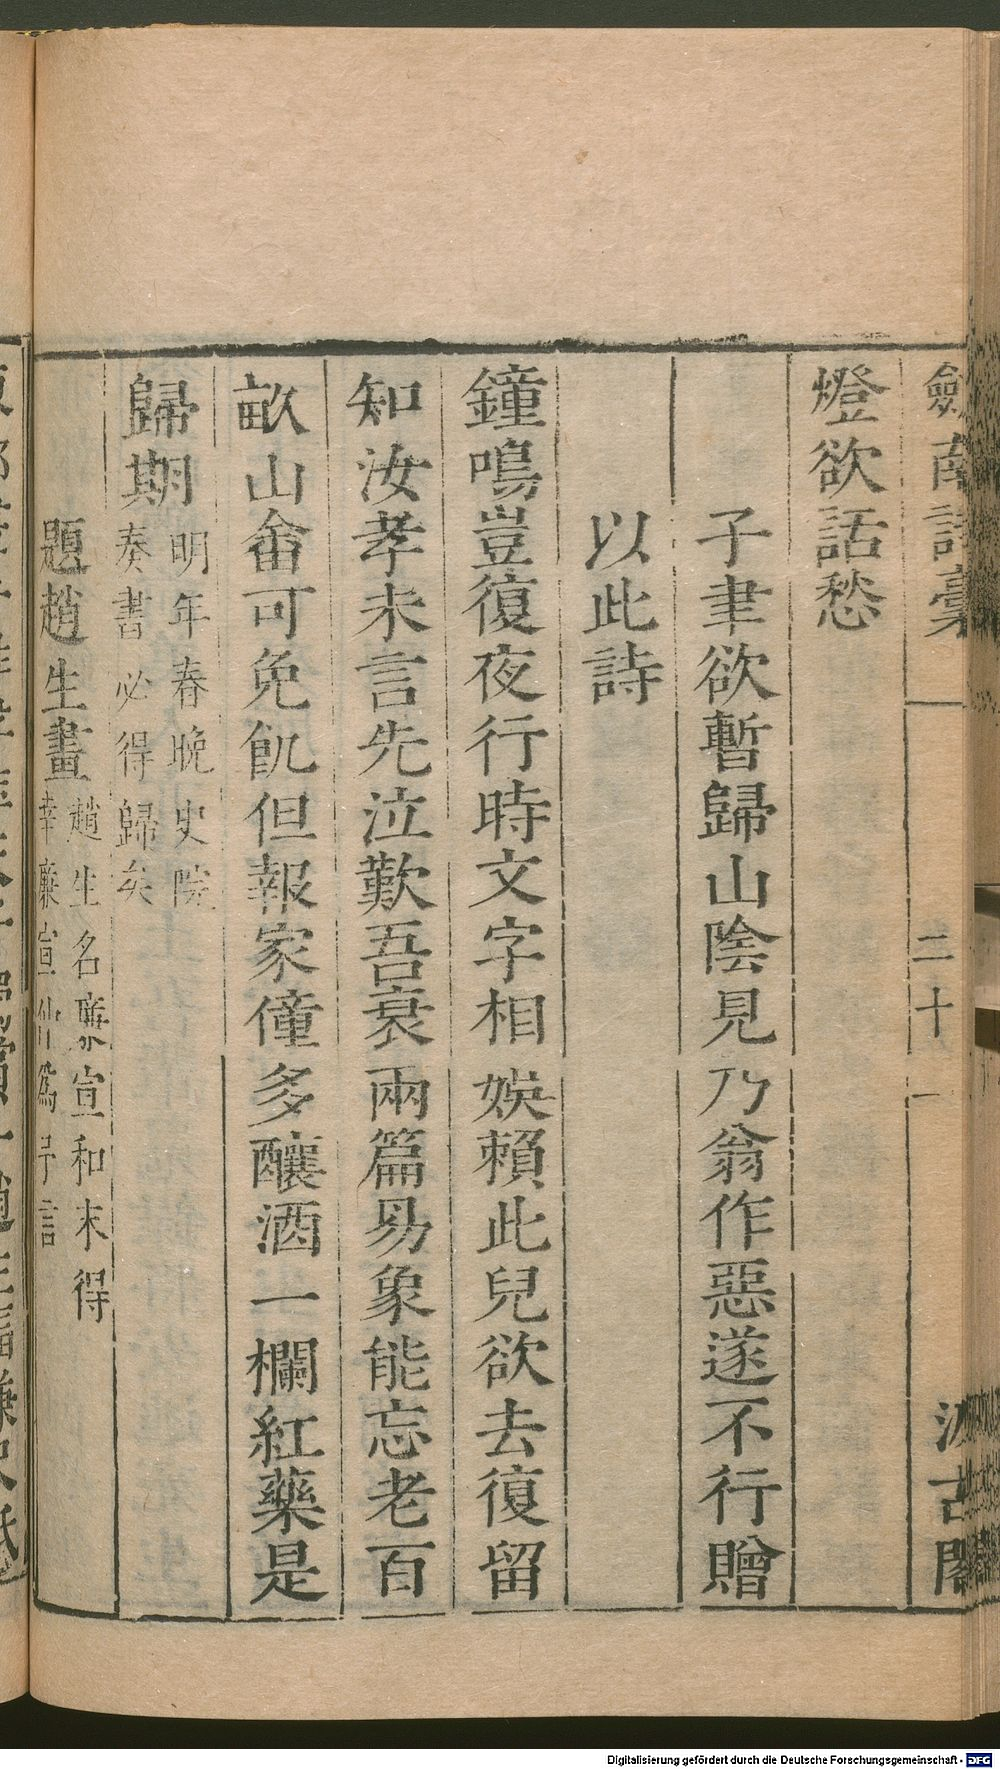 劍南詩稾
二十
一
汲古閣
燈欲話愁
子聿欲暫歸山陰見乃翁作惡遂不行贈
以此詩
鐘鳴豈復夜行時文字相娛賴此兒欲去復留
知汝孝未言先泣歎吾衰兩篇易象能忘老百
畝山畬可免飢但報家僮多釀酒一欄紅藥是
歸期
明年春晚史院
奏書必得歸矣
題趙生畫
趙生名廉宣和末得
幸廉宣仲爲予言
Digitalisierung gefördert durch die Deutsche Forschungsgemeinschaft - DFG